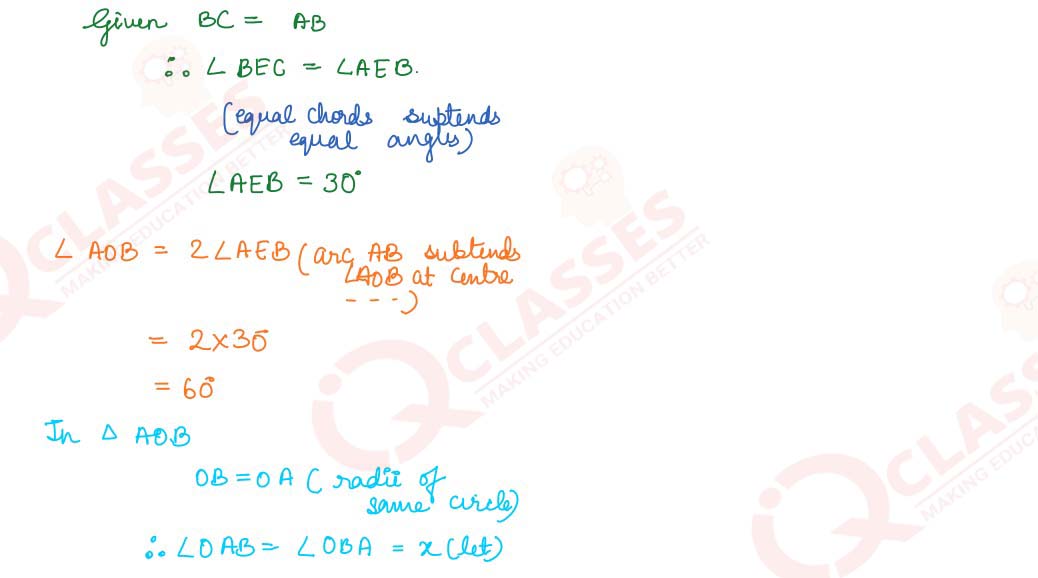 Given BC = AB
∴ ∠ BEC = ∠AEB.
(equal chords suptends
equal angles)
∠AEB = 30°
∠ AOB = 2∠AEB (arc AB subtends
∠AOB at centre
- - - -)
= 2×30°
= 60°
In △ AOB
OB = OA ( radii of
same circle)
∴ ∠OAB = ∠OBA = x (let)
IQ CLASSES
MAKING EDUCATION BETTER
IQ CLASSES
MAKING EDUCATION BETTER
IQ CLASSES
MAKING EDUCATION